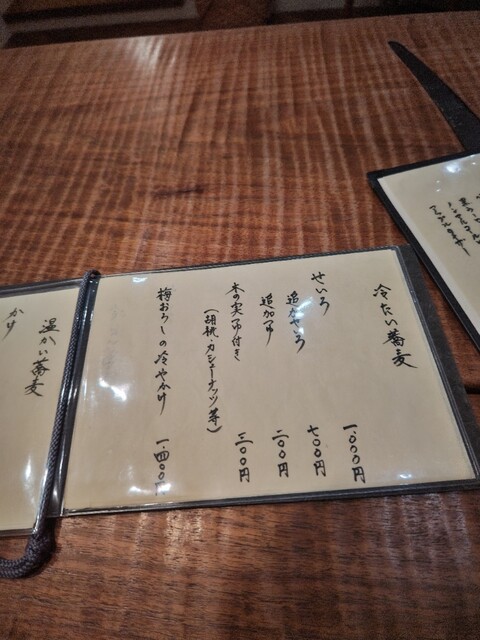 冷たい蕎麦
せいろ 一、〇〇〇円
追加せいろ 七〇〇円
追加つゆ 二〇〇円
木の実つゆ付き 三〇〇円
(胡桃・カシューナッツ等)
梅おろしの冷やかけ 一、四〇〇円
温かい蕎麦
かけ